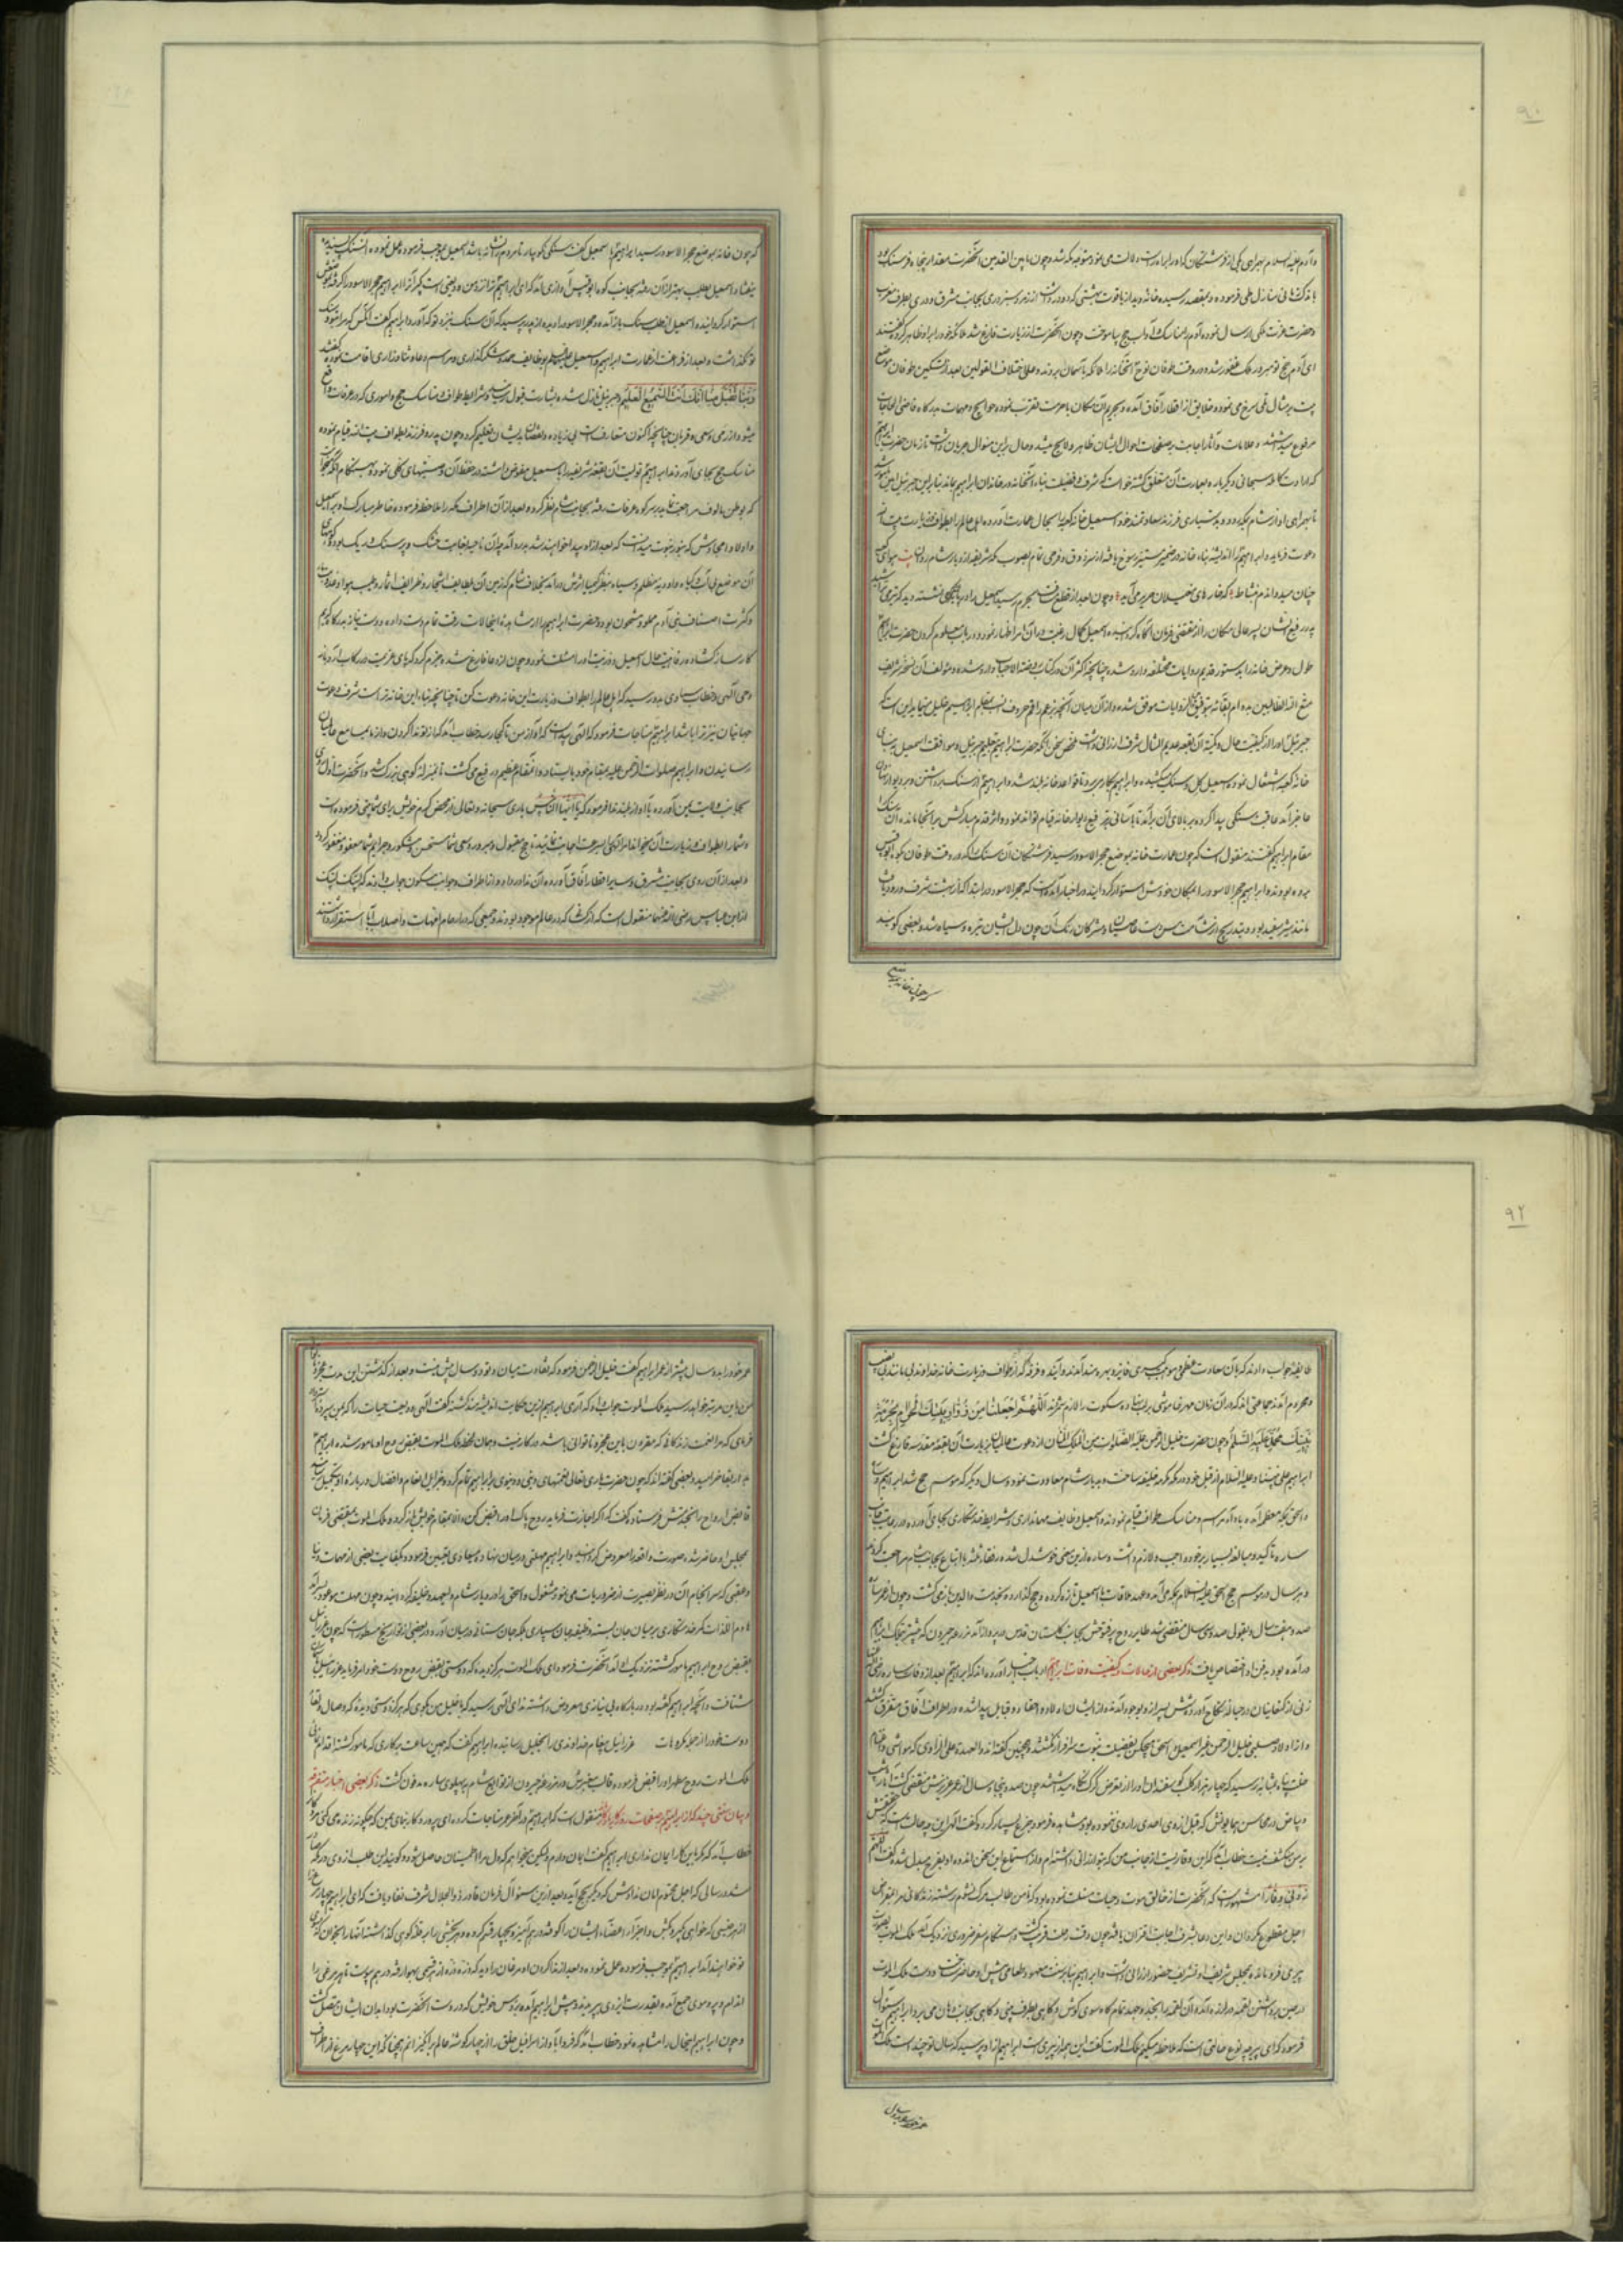 ۹۰
وآدم علیه السلام بهمراهی یکی از فرشتگان که او را براه راست دلالت می نمود متوجه مکه شد و چون مابین القدمین آنحضرت مقدار پنجاه فرسنک بود
باندک زمانی منازل طی فرموده و بمقصد رسیده خانه دید از یاقوت بهشتی که دو در داشت از زمرد سبز دری بجانب مشرق و دری بطرف مغرب
وحضرت عزت ملکی ارسال نمود تا آدم را مناسک و آداب حج بیاموخت و چون آنحضرت از زیارت فارغ شد ملائکه خود را برابر او ظاهر کرده گفتند
ای آدم حج تو مبرور و گناه مغفور شد و در وقت طوفان نوح آنخانه را ملائکه بآسمان بردند و علی اختلاف القولین بعد از تسکین طوفان موضع
بیت بر مثال تلی سرخ می نمود و خلایق از اقطار آفاق آمده و بحریم آن مکان با حرمت تقرب نموده حوایج و مهمات بدرگاه قاضی الحاجات
مرفوع میداشتند و علامات و آثار اجابت بر صفحات احوال ایشان ظاهر و لایح میشد و حال برین منوال جریان داشت تا زمان حضرت ابراهیم
که ارادت کامله سبحانی دیگر باره بعمارت آن متعلق گشته خواست که شرف و فضیلت بناء آنخانه در خاندان ابراهیم بماند بنابراین جبرئیل امین مأمور شد
تا بهمراهی او از شام بمکه رود و بدستیاری فرزند سعادتمند خود اسمعیل خانه کعبه را بحال عمارت آورده اهل عالم را بطواف و زیارت بیت الله
دعوت فرماید و ابراهیم را اندیشه بناء خانه در ضمیر منیر رسوخ یافته از سر ذوق و فرحی تمام بصوب مکه شریفه از دیار شام روان بیت هوای کعبه
چنان میدواندم بنشاط که خارهای مغیلان حریر می آید و چون بعد از قطع مسافت بحرم رسید اسمعیل را در پایه کوهی نشسته دید که تیر می تراشید
پدر رفیع الشان پسر عالی مکان را از مقتضی فرمان آگاه گردانیده اسمعیل کمال رغبت در آن امر اظهار نمود و در باب معلوم کردن حضرت ابراهیم
طول و عرض خانه را بر دستور قدیم روایات مختلفه وارد شده چنانچه اکثر آن در کتاب روضة الاحباب وارد شده و مؤلف آن نسخه شریف
جبرئیل او را از کیفیت حال و کمیت آن بقعه عدیم المثال شرف ارزانی داشت ملخص سخن آنکه حضرت ابراهیم بتعلیم جبرئیل و موافقت اسمعیل به بنای
خانه کعبه اشتغال نموده اسمعیل گل و سنگ میکشید و ابراهیم بکار می برد تا قواعد خانه بلند شد و ابراهیم از سنگ برداشتن و بر دیوار نهادن
عاجز آمد عاقبت سنگی پیدا کرده بر بالای آن برآمد تا بآسانی بترفیع دیوار خانه قیام تواند نمود و اثر قدم مبارکش بر آنجا مانده آن سنگ را
مقام ابراهیم گفتند منقول است که چون عمارت خانه بموضع حجر الاسود رسید فرشتگان آن سنگ را که در وقت طوفان بکوه ابوقبیس
برده بودند و ابراهیم حجر الاسود را بمکان خودش استوار گردانید در اخبار آمده است که حجر الاسود در ابتدا که از بهشت شرف ورود یافت
مانند شیر سفید بود و بتدریج از شآمت مس دست عاصیان و مشرکان رنک آن چون دل ایشان تیره و سیاه شد و بعضی گویند
که چون خانه بموضع
که چون خانه بموضع حجر الاسود رسید ابراهیم با اسمعیل گفت سنگی نکو بیار تا مردم را نشانه باشد اسمعیل بموجب فرموده عمل نموده آن سنک پسندیده
نیفتاد و اسمعیل بطلب بهتر از آن رفته بجانب کوه ابوقبیس آوازی آمد که ای ابراهیم ترا نزد من ودیعتی است بگیر آنرا ابراهیم حجر الاسود را گرفته بموضعش
استوار گردانید و اسمعیل از طلب سنک باز آمده و حجر الاسود را دیده از پدر پرسید که آن سنک نزد تو که آورد ابراهیم گفت آنکس که مرا بتو و سنک
تو نگذاشت و بعد از فراغت از عمارت ابراهیم و اسمعیل علیهما السلام بوظایف حمد و شکرگذاری و مراسم دعا و ثنا و زاری اقامت نموده گفتند
رَبَّنَا تَقَبَّلْ مِنَّا اِنَّكَ اَنْتَ السَّمِیعُ الْعَلِیمُ و جبرئیل نازل شده بشارت قبول رسانید و شرایط طواف و مناسک حج و اموری که در عرفات واقع
میشود از رمی و سعی و قربان چنانچه اکنون متعارف است بی زیاده و نقصان بایشان تعلیم کرد و چون پدر و فرزند بطواف بیت الله قیام نموده
مناسک حج بجای آوردند ابراهیم تولیت آن بقعه شریفه را باسمعیل مفوض داشته در حفظ آن وصیتهای بکلی نمود و بهنگام آنکه میخواست
که بوطن مالوف مراجعت نماید بر سر کوه عرفات رفته بجانب شام نظر کرده و بعد از آن اطراف مکه را ملاحظه فرموده خاطر مبارک او بر اسمعیل
آن موضع بی آب و گیاه و اودیه مظلم و سیاه بنظر کیمیا اثرش درآمد بخلاف شام که زمین آن بلطایف اشجار و ظرایف اثمار و طیب هوا و عذوبت
وکثرت اصناف بنی آدم مملو و مشحون بود و حضرت ابراهیم را از مشاهده اینحالات رقت تمام دست داده و دست نیاز بدرگاه کریم
کارساز گشاده رفاهیت حال اسمعیل و ذریت او را مسئلت نمود و چون از دعا فارغ شده جزم کرد که پای عزیمت در رکاب آورد بناگاه
وحی الهی و خطاب سماوی بدو رسید که اهل عالم را بطواف و زیارت این خانه دعوت کن تا چنانچه بناء این خانه تراست شرف دعوت
جهانیان نیز ترا باشد ابراهیم مناجات فرمود که الهی پیداست که آواز من تا کجا رسد خطاب آمد که از تو ندا کردن و از ما بمسامع عالمیان
رسانیدن و ابراهیم صلوات الرحمن علیه بمقام خود بایستاد و آن مقام عظیم رفیع می گشت تا بمنزله کوهی بزرگ شد و آنحضرت اول روی
بجانب ولایت یمن آورده بآواز بلند ندا فرمود که یا ایها الناس باری سبحانه و تعالی از محض کرم خویش برای شما بیتی فرموده است
وشما را بطواف و زیارت آن میخواند امر الهی را بسرعت اجابت نمائید تا حج مقبول و مبرور و سعی شما مستحسن و مشکور و جرایم شما معفو و مغفور گردد
وبعد از آن روی بجانب مشرق و سایر اقطار آفاق آورده آن ندا در داد و از اطراف و جوانب مسکون جواب دادند که لبیک لبیک
از ابن عباس رضی الله عنهما منقول است که از کسانی که در عالم موجود بودند و جمعی که در ارحام امهات و اصلاب آباء استقرار داشتند
۹۲
طایفه جواب دادند که بآن سعادت عظمی و موهبت کبری فایز و بهره مند آمدند و آینده فرقه که از طواف و زیارت خانه خداوند بی مانند بی نصیب
ومحروم آمدند جماعتی اند که در آن زمان مهر خاموشی بر لب نهاده سکوت را لازم شمردند اَللّهُمَّ اجْعَلْنَا مِن زُوّارِ بَیْتِكَ الْحَرامِ بِحُرمَةِ
نَبِیِّكَ مُحَمَّدٍ عَلَیْهِ السَّلام و چون حضرت خلیل الرحمن علیه الصلوات من الملک المنان از دعوت عالمیان بزیارت آن بقعه مقدسه فارغ گشت
ابراهیم علی نبینا و علیه السلام از قبل خود در مکه مکرمه خلیفه ساخت و بدیار شام معاودت نمود و سال دیگر که موسم حج شد ابراهیم و ساره
واسحق بمکه معظمه آمده با دآء مراسم و مناسک طواف قیام نمودند و اسمعیل وظایف مهمانداری و شرایط خدمتکاری بجای آورده در رعایت جانب
ساره تأکید و مبالغه بسیار بر خود واجب و لازم داشت و ساره ازین معنی خوشدل شده رفقا و بقیه اتباع بجانب شام مراجعت کردند
وهر سال در موسم حج اسحق علیه السلام بمکه می آمد و عهد ملاقات با اسمعیل تازه کرده و حج گذارده بخدمت والدین باز می گشت و چون از عمر ساره
صد و هفت سال و بقولی صد و سی سال منقضی شد طایر روح پرفتوحش بجانب گلستان قدس در پرواز آمد در مزرعه حبرون که پیشتر بملک ابراهیم
درآمده بود بدفن او اختصاص یافت ذکر بعضی از حالات و کیفیت وفات ابراهیم ارباب اخبار آورده اند که ابراهیم بعد از وفات ساره رضی الله عنها
زنی از کنعانیان در حباله نکاح آورد و شش پسر از و بوجود آمدند و از ایشان اولاد و احفاد و قبایل پیدا شده در اطراف آفاق متفرق گشتند
واز اولاد صلبی خلیل الرحمن غیر اسمعیل و اسحق هیچکس بفضیلت نبوت سرافراز نگشتند و همچنین گفته اند والعهدة علی الراوی که مواشی و اغنام
خلت پناه بمثابه رسید که چهار هزار کلب گوسفندان او را از تعرض گرگ نگاه میداشتند چون صد و پنجاه سال از عمر عزیزش منقضی گشت آثار شیب
وبیاض در محاسن همایونش که قبل از وی احدی را روی ننموده بود مشاهده فرمود جزع بسیار کرد و گفت الهی این چه حالت است که بر من
زدنی وقاراً مشهور است که آنحضرت از خالق موت و حیات مسئلت نموده بود که تا من طالب مرک نشوم رشته زندگانی مرا بمقراض
اجل مقطوع مگردان و این دعا شرف اجابت اقتران یافته چون وقت رحلت قریب گشت و هنگام سفر ضروری نزدیک آمد ملک الموت بصورت
پیری فرومانده بمجلس شریف او تشریف حضور ارزانی داشت و ابراهیم بنابر سنت معهود طعامی پیش او حاضر ساخت و دست ملک الموت
در حین برداشتن لقمه در لرزه آمده آن لقمه را بجنبد و جهد تمام گاه سوی گوش و گاهی بطرف بینی و گاهی بجانب دهان می برد ابراهیم سئوال
فرمود که ای پیر چه نوع حالتی است که ملاحظه میکنم ملک الموت گفت این همه از پیری است ابراهیم از او پرسید که سال تو چند است ملک الموت
عمر خود را بدو سال
عمر خود را بدو سال بیشتر از عمر ابراهیم گفت خلیل الرحمن فرمود که تفاوت میان و تو دو سال بیش نیست و بعد از گذشتن این مدت عجز
من باین مرتبه خواهد رسید ملک الموت جواب داد که آری ابراهیم ازین حکایت اندیشمند گشته گفت الهی ودیعت حیات را که بمن سپرده
فرمای که مرا نعمت زندگانی که مقرون باین عجز و ناتوانی باشد در کار نیست و همان لحظه ملک الموت بقبض روح او مامور شده ابراهیم
بدار بقا خرامید و بعضی گفته اند که چون حضرت باری تعالی نعمتهای دینی و دنیوی بر ابراهیم تمام کرد و جزایل انعام و افضال در باره او بتکمیل رسانید
قابض ارواح را بخدمتش فرستاد و گفت که اگر اجازت فرماید روح پاک او را قبض کن والا بمقام خویش باز گرد ملک الموت بمقتضی فرمان
بمجلس او حاضر شد و صورت واقعه را معروض گردانید و ابراهیم مهلتی در میان نهاد و میعادی تعیین فرمود و بکفایت بعضی از مهمات دنیا
وعقبی که سرانجام آن در نظر بصیرت از ضروریات می نمود مشغول و اسحق را در دیار شام ولیعهد و خلیفه گردانید و چون مهلت موعود بسر آمد
بقبض روح ابراهیم مامور گشته نزدیک او آمد آنحضرت فرمود ای ملک الموت هرگز دیده که دوستی بقبض روح دوست خود امر فرماید عزرائیل
شتافت و آنچه ابراهیم گفته بود در بارگاه بی نیازی معروض داشته ندای الهی رسید که با خلیل من بگوی که هرگز دوستی دیدی که وصال و لقاء
دوست خود را از جمله مکروهات عزرائیل پیغام خداوندی را بخلیل رسانیده ابراهیم گفت که همین ساعت بر کاری که مامور گشته اقدام نمای
ملک الموت روح مطهر او را قبض فرمود و قالب شریفش در مزرعه حبرون از توابع شام بر پهلوی ساره مدفون گشت ذکر بعضی اخبار متفرقه
وبیان سنتی چند که از ابراهیم بر صفحات روزگار یادگار منقول است که ابراهیم در آخر عمر مناجات کرد که ای پروردگار بنمای بمن که چگونه زنده می کنی مردگان
خطاب آمد که مگر باین کار ایمان نداری ابراهیم گفت ایمان دارم ولیکن میخواهم که دل مرا اطمینان حاصل شود و گویند این طلب از وی در مکه صادر
از هر جنسی که خواهی بگیر و بکش و اجزاء و اعضاء ایشان را کوفته درهم آمیز و چهار قسم کرده و هر بخشی را بر قله کوهی گذاشته آنها را بخوان که زود
تو خواهند آمد ابراهیم بموجب فرموده عمل نموده و بعد از ندا کردن او مرغان را دید که ذره ذره از هر قسمی بهوا رفته در هم پیوست تا هر مرغی را
اندام و پر و موی جمع آمده بقدرت ایزدی پریدند و پیش ابراهیم آمده بر دوس خویش که در دست آنحضرت بود ابدان ایشان متصل گشت
وچون ابراهیم اینحال را مشاهده نمود خطاب آمد که فردا بآواز اسرافیل خلق را از چهار گوشه عالم برانگیزانم همچنانکه این چهار مرغ از اطراف